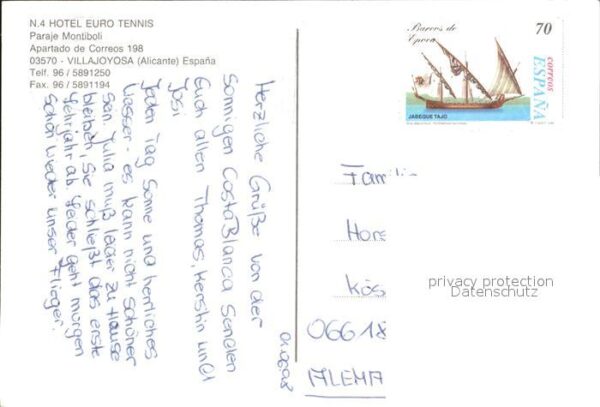 N.4 HOTEL EURO TENNIS
Paraje Montiboli
Apartado de Correos 198
03570 - VILLAJOYOSA (Alicante) España
Telf. 96 / 5891250
Fax. 96 / 5891194
Barcos de
Epoca
70
correos
ESPAÑA
JABEQUE TAJO
01.06.98
Herzliche Grüße von der
sonnigen Costa Blanca senden
Euch allen Thomas, Kerstin und
Josi
Jeden Tag Sonne und herrliches
Wasser - es kann nicht schöner
sein. Julia muß leider zu Hause
bleiben, sie schließt das erste
Lehrjahr ab. Leider geht morgen
schon wieder unser Flieger.
Famili
Hors
Kös
06618
ALEMA
privacy protection
Datenschutz